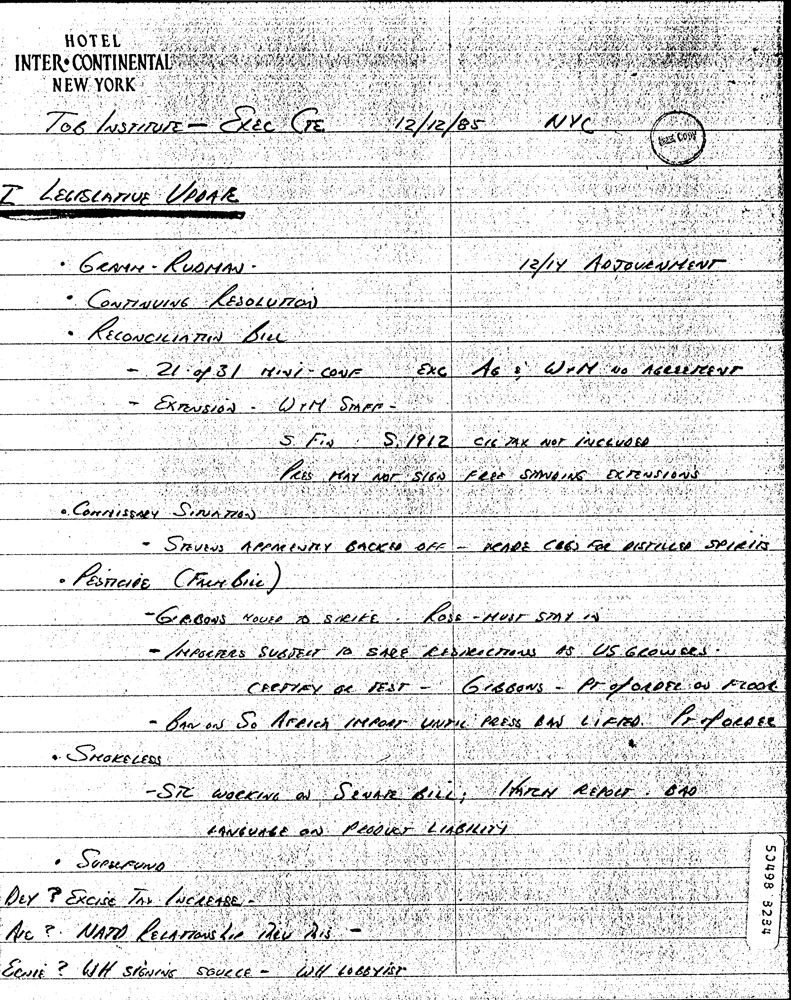 HOTEL
INTER•CONTINENTAL
NEW YORK
TOB INSTITUTE — EXEC CTE 12/12/85 NYC
I LEGISLATIVE UPDATE
• GRAMM - RUDMAN - 12/14 ADJOURNMENT
• CONTINUING RESOLUTION
• RECONCILIATION BILL
- 21 of 31 MINI-CONF EXC AG & W+M NO AGREEMENT
- EXTENSION - W+M STAFF -
S. FIN S. 1912 CIG TAX NOT INCLUDED
PRES MAY NOT SIGN FREE STANDING EXTENSIONS
• COMMISSARY SITUATION
- STEVENS APPARENTLY BACKED OFF - FOR DISTILLED SPIRITS
• PESTICIDE (FARM BILL)
- GIBBONS MOVED TO STRIKE . ROSE - MUST STAY IN
- IMPORTERS SUBJECT TO SAME RESTRICTIONS AS US GROWERS.
CERTIFY OR TEST - GIBBONS - PT of ORDER ON FLOOR
- BAN ON SO AFRICA IMPORT UNTIL PRESS BAN LIFTED. PT of ORDER
• SMOKELESS
- STC WORKING ON SENATE BILL; HATCH REPORT . BAD
LANGUAGE ON PRODUCT LIABILITY
• SUPERFUND
? EXCISE TAX INCREASE -
? RELATIONSHIP -
ERNIE ? WH SIGNING SOURCE - WH LOBBYIST
50498 8284